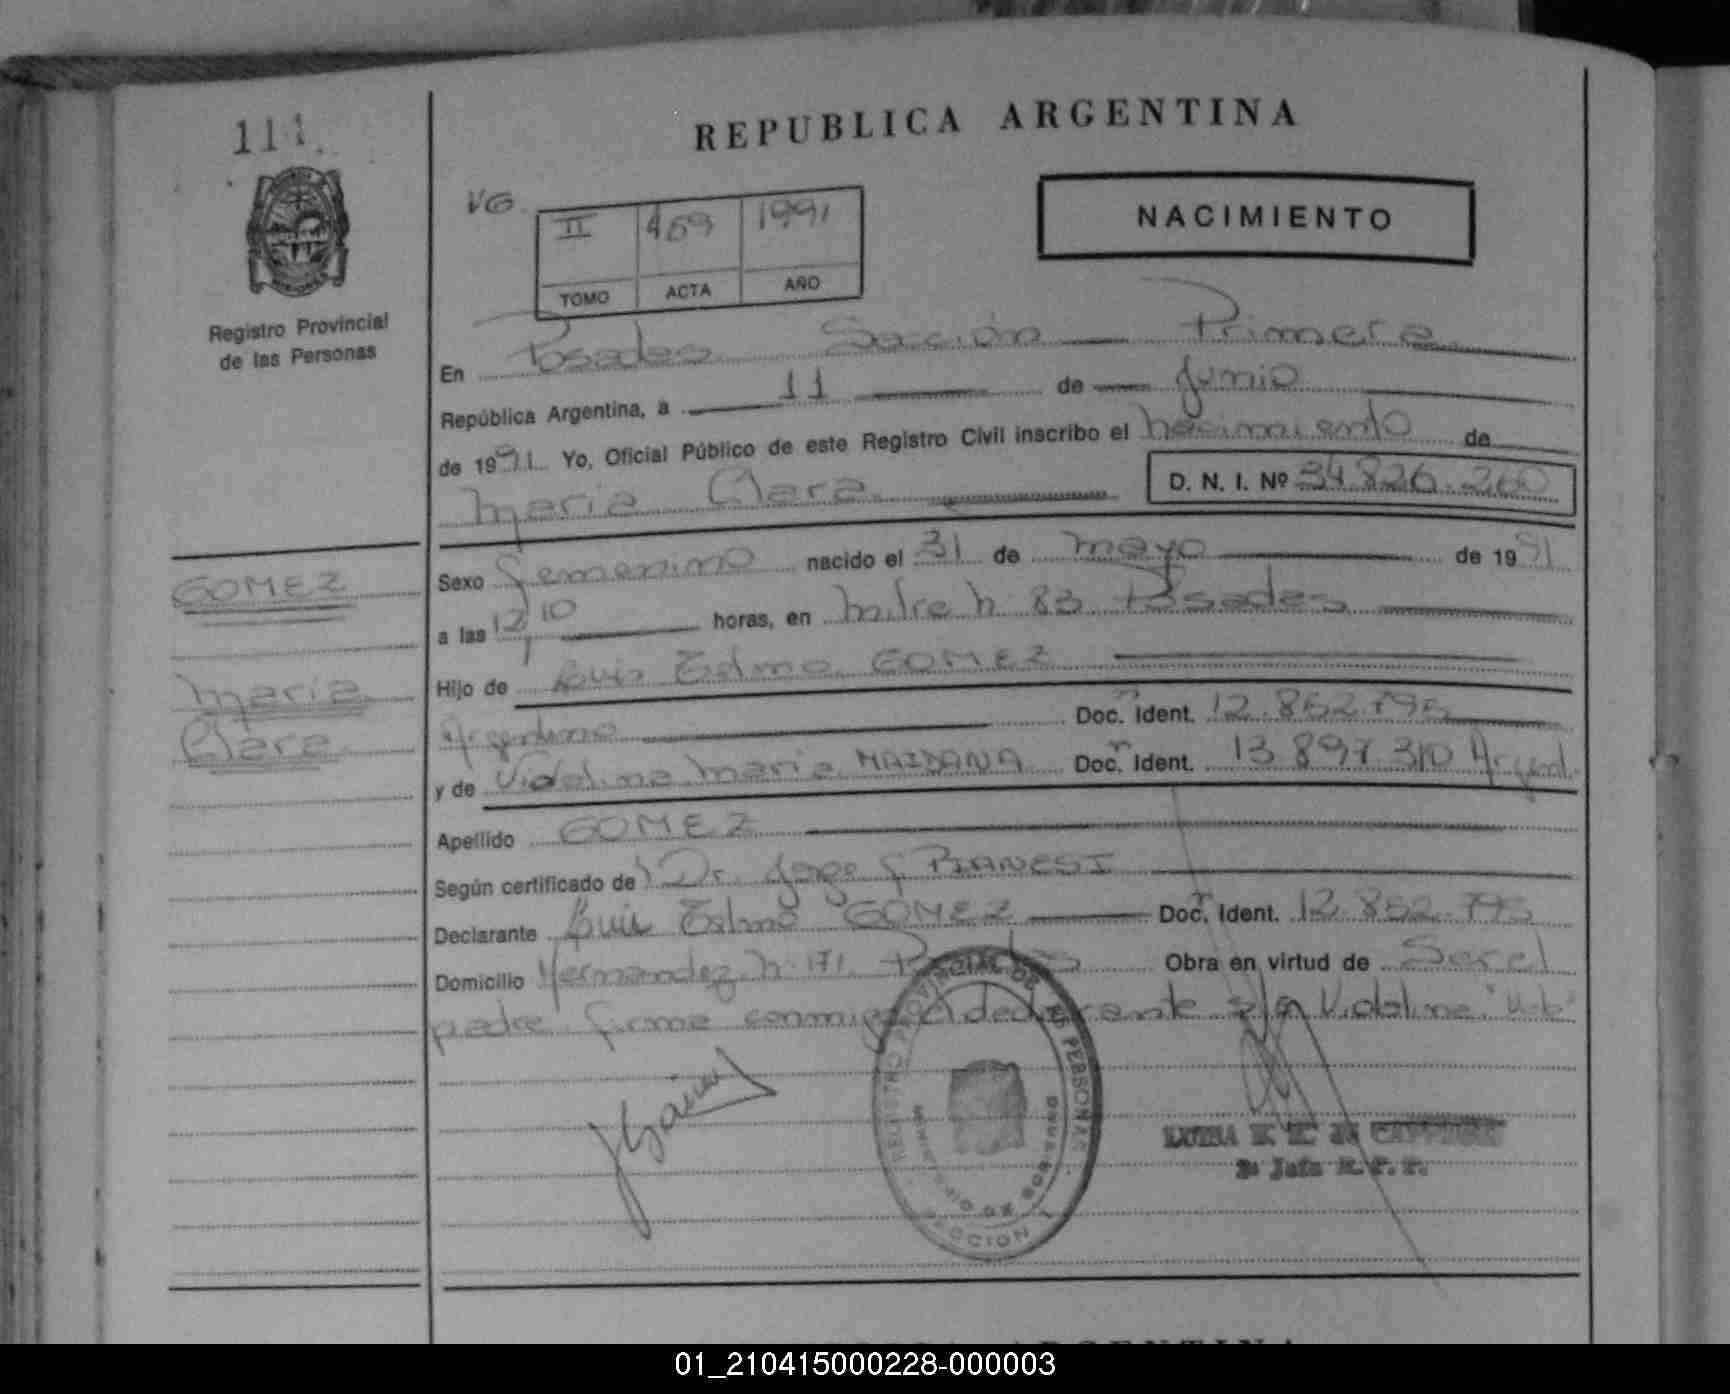 111
REPUBLICA ARGENTINA
VG
II 469 1991
TOMO ACTA AÑO
NACIMIENTO
Registro Provincial
de las Personas
En Posadas Sección Primera
República Argentina, a 11 de Junio
de 1991 Yo, Oficial Público de este Registro Civil inscribo el nacimiento de
Maria Clara D. N. I. Nº 34.826.260
GOMEZ
Maria
Clara
Sexo femenino nacido el 31 de mayo de 1991
a las 12,10 horas, en Mitre n 83 Posadas
Hijo de Luis Telmo GOMEZ
Argentino Doc. Ident. 12.852.795
y de Vidalina Maria MAIDANA Doc. Ident. 13.897.310 Argent.
Apellido GOMEZ
Según certificado de Dr. Jorge PIANESI
Declarante Luis Telmo GOMEZ Doc. Ident. 12.852.795
Domicilio Hernandez n 171 Posadas Obra en virtud de Ser el
padre firma conmigo el declarante s/r Vidalina "Vale"
REGISTRO PROVINCIAL DE LAS PERSONAS
MINISTERIO DE GOBIERNO
SECCION 1
LUISA
2º Jefe R. P. P.
01_210415000228-000003